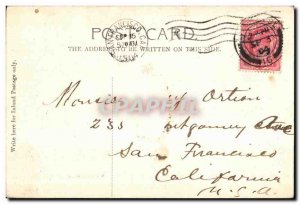 POST CARD
THE ADDRESS TO BE WRITTEN ON THIS SIDE.
Write here for Inland Postage only.
Monsieur Ortion
235 Montgomery Ave
San Francisco
California
U.S.A.